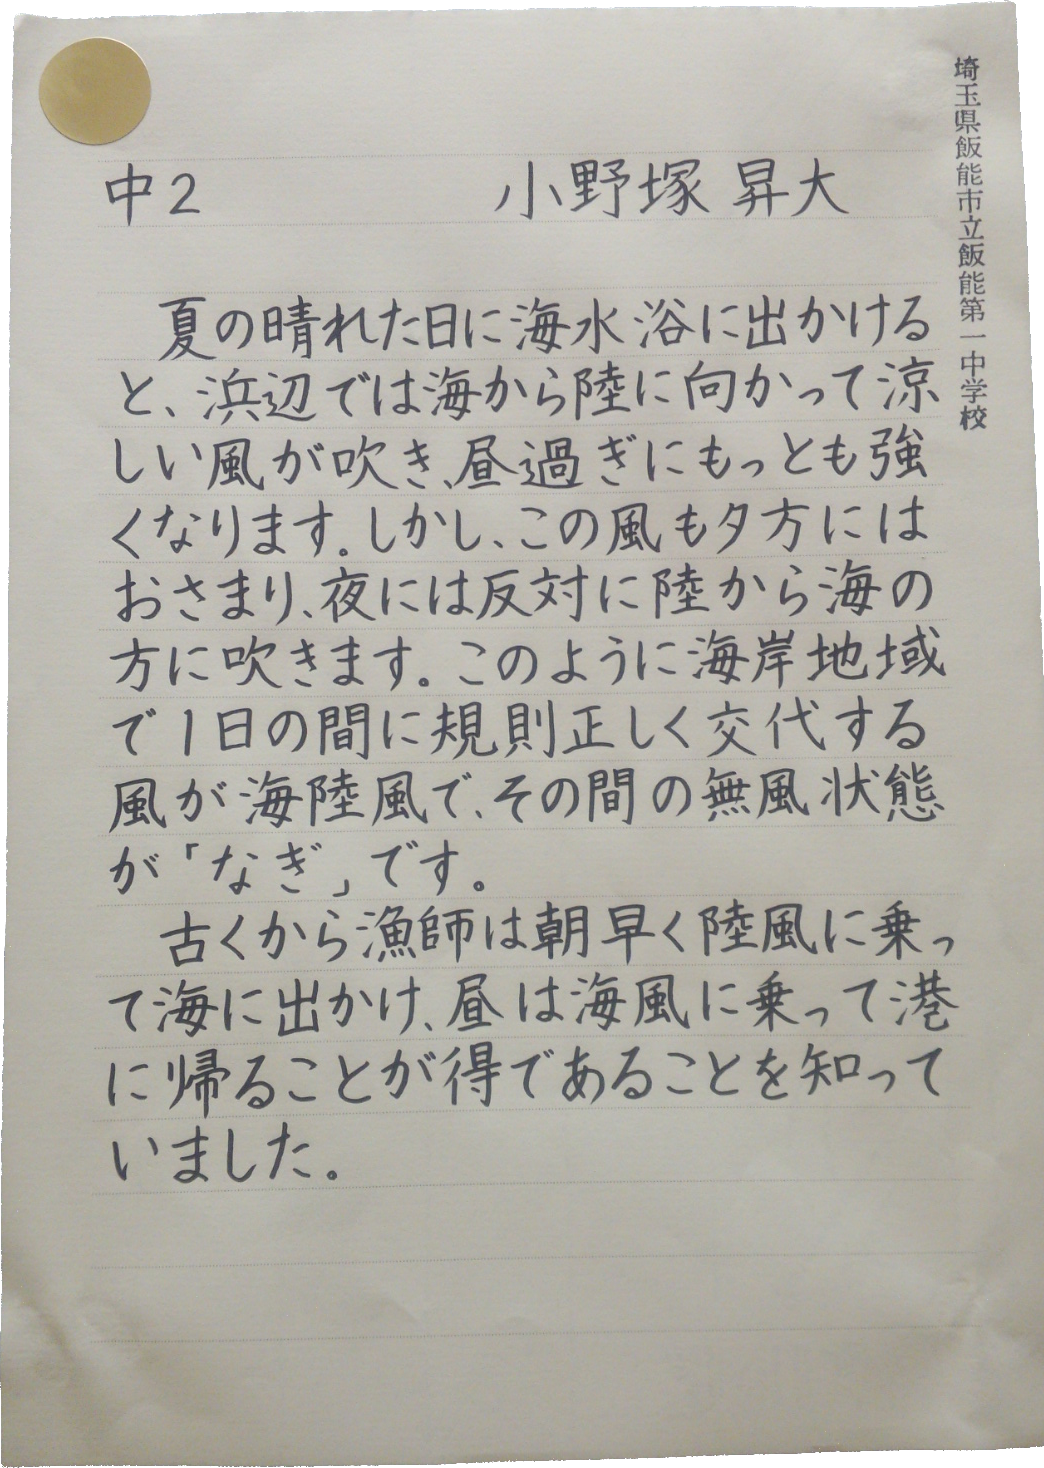 埼玉県飯能市立飯能第一中学校
中2 小野塚 昇大
夏の晴れた日に海水浴に出かける
と、浜辺では海から陸に向かって涼
しい風が吹き、昼過ぎにもっとも強
くなります。しかし、この風も夕方には
おさまり、夜には反対に陸から海の
方に吹きます。このように海岸地域
で1日の間に規則正しく交代する
風が海陸風で、その間の無風状態
が「なぎ」です。
古くから漁師は朝早く陸風に乗っ
て海に出かけ、昼は海風に乗って港
に帰ることが得であることを知って
いました。